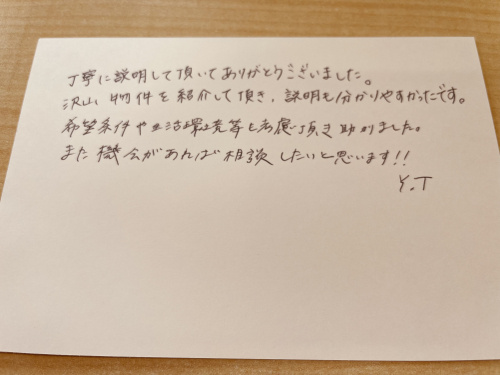 丁寧に説明して頂いてありがとうございました。
沢山物件を紹介して頂き、説明も分かりやすかったです。
希望条件や生活環境等も考慮頂き助かりました。
また機会があれば相談したいと思います!!
Y.T